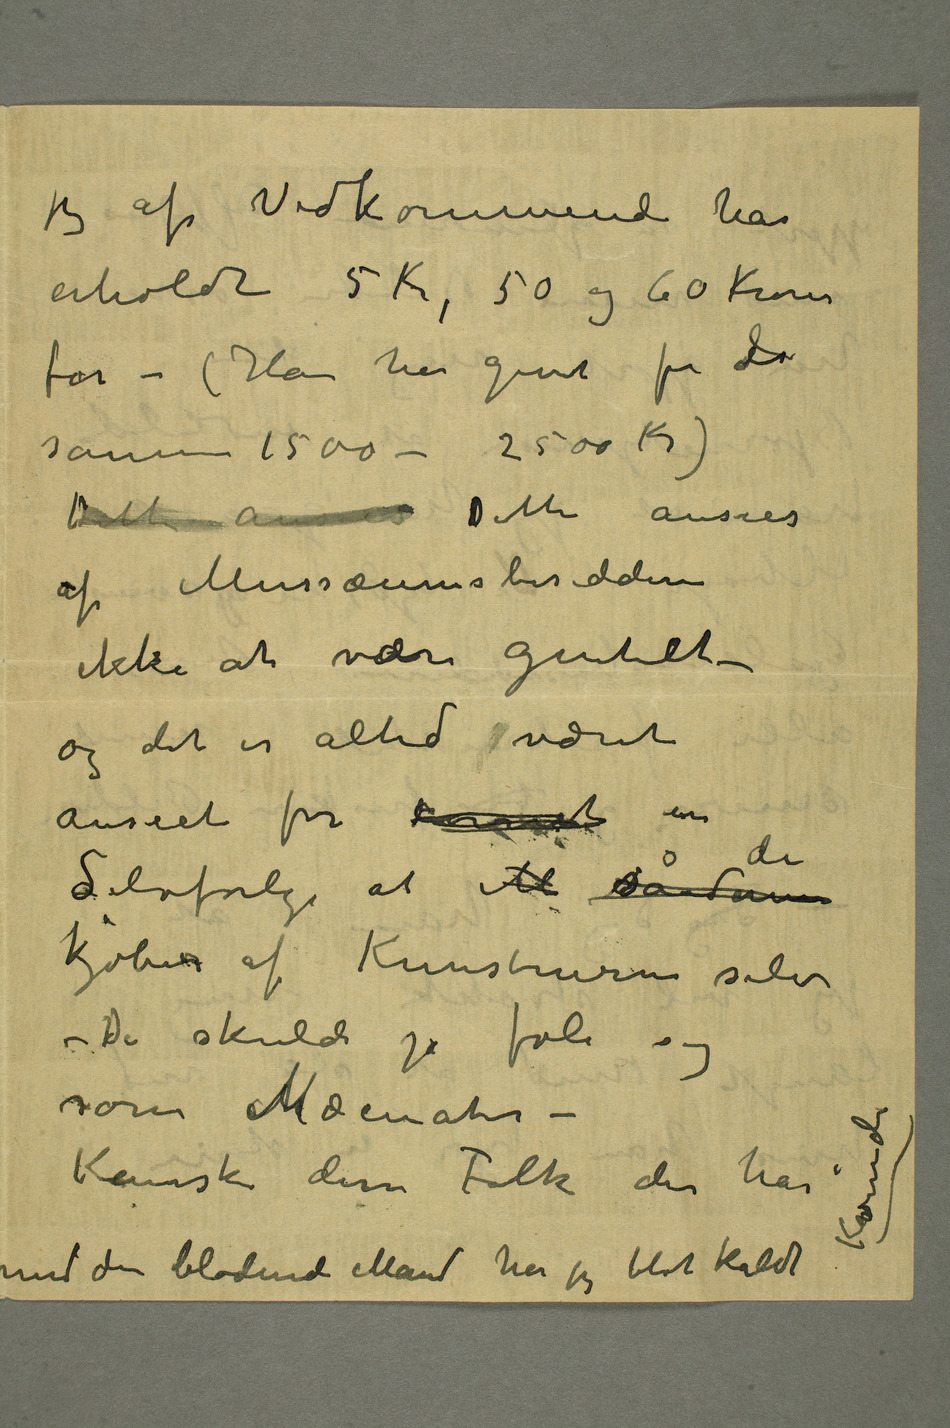 jeg af Vedkommende har
erholdt 5 Kr, 50 og 60 Kroner
før – (Han har givet for de
samme 1500 – 2500 Kr)
Dette ansees Dette ansees
af Mussæumsbesidderne
ikke at være gentilt –
og det er altid været
anseet for en
Selvfølge at ill sådanne de
kjøber af Kunstnerne selv
– De skulde jo føle sig
som Mæcenater –
Kanske disse Folk der har
med den blødende Mand har jeg blot kaldt
Kvinde)